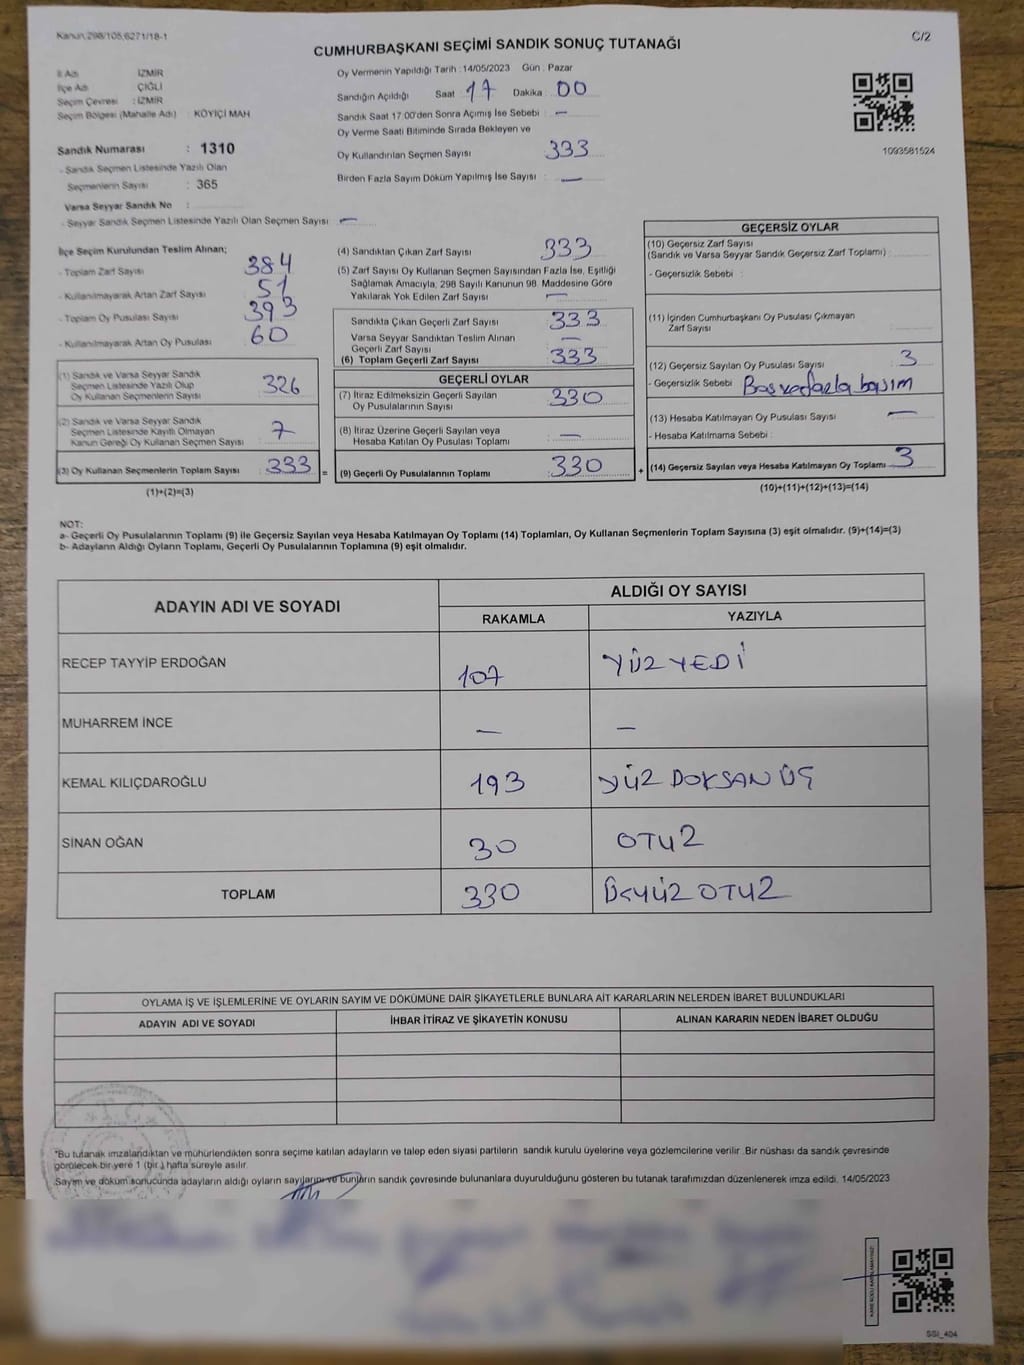 Kanun:298/105,6271/18-1
C/2
CUMHURBAŞKANI SEÇİMİ SANDIK SONUÇ TUTANAĞI
İl Adı : İZMİR
İlçe Adı : ÇİĞLİ
Seçim Çevresi : İZMİR
Seçim Bölgesi (Mahalle Adı) : KÖYİÇİ MAH
Sandık Numarası : 1310
- Sandık Seçmen Listesinde Yazılı Olan
Seçmenlerin Sayısı : 365
Varsa Seyyar Sandık No :
- Seyyar Sandık Seçmen Listesinde Yazılı Olan Seçmen Sayısı : —
Oy Vermenin Yapıldığı Tarih : 14/05/2023 Gün : Pazar
Sandığın Açıldığı Saat 17 Dakika : 00
Sandık Saat 17:00'den Sonra Açımış İse Sebebi : —
Oy Verme Saati Bitiminde Sırada Bekleyen ve
Oy Kullandırılan Seçmen Sayısı : 333
Birden Fazla Sayım Döküm Yapılmış İse Sayısı : —
1093581524
İlçe Seçim Kurulundan Teslim Alınan;
- Toplam Zarf Sayısı : 384
- Kullanılmayarak Artan Zarf Sayısı : 51
- Toplam Oy Pusulası Sayısı : 393
- Kullanılmayarak Artan Oy Pusulası : 60
(1) Sandık ve Varsa Seyyar Sandık
Seçmen Listesinde Yazılı Olup
Oy Kullanan Seçmenlerin Sayısı : 326
(2) Sandık ve Varsa Seyyar Sandık
Seçmen Listesinde Kayıtlı Olmayan
Kanun Gereği Oy Kullanan Seçmen Sayısı : 7
(3) Oy Kullanan Seçmenlerin Toplam Sayısı : 333 =
(1)+(2)=(3)
(4) Sandıktan Çıkan Zarf Sayısı : 333
(5) Zarf Sayısı Oy Kullanan Seçmen Sayısından Fazla İse, Eşitliği
Sağlamak Amacıyla, 298 Sayılı Kanunun 98. Maddesine Göre
Yakılarak Yok Edilen Zarf Sayısı : —
Sandıkta Çıkan Geçerli Zarf Sayısı : 333
Varsa Seyyar Sandıktan Teslim Alınan
Geçerli Zarf Sayısı : —
(6) Toplam Geçerli Zarf Sayısı : 333
GEÇERLİ OYLAR
(7) İtiraz Edilmeksizin Geçerli Sayılan
Oy Pusulalarının Sayısı : 330
(8) İtiraz Üzerine Geçerli Sayılan veya
Hesaba Katılan Oy Pusulası Toplamı : —
(9) Geçerli Oy Pusulalarının Toplamı : 330 +
GEÇERSİZ OYLAR
(10) Geçersiz Zarf Sayısı
(Sandık ve Varsa Seyyar Sandık Geçersiz Zarf Toplamı) :
- Geçersizlik Sebebi :
(11) İçinden Cumhurbaşkanı Oy Pusulası Çıkmayan
Zarf Sayısı :
(12) Geçersiz Sayılan Oy Pusulası Sayısı : 3
- Geçersizlik Sebebi : Boş ve fazla basım
(13) Hesaba Katılmayan Oy Pusulası Sayısı : —
- Hesaba Katılmama Sebebi :
(14) Geçersiz Sayılan veya Hesaba Katılmayan Oy Toplamı : 3
(10)+(11)+(12)+(13)=(14)
NOT:
a- Geçerli Oy Pusulalarının Toplamı (9) ile Geçersiz Sayılan veya Hesaba Katılmayan Oy Toplamı (14) Toplamları, Oy Kullanan Seçmenlerin Toplam Sayısına (3) eşit olmalıdır. (9)+(14)=(3)
b- Adayların Aldığı Oyların Toplamı, Geçerli Oy Pusulalarının Toplamına (9) eşit olmalıdır.
ADAYIN ADI VE SOYADI
ALDIĞI OY SAYISI
RAKAMLA YAZIYLA
RECEP TAYYİP ERDOĞAN 107 YÜZ YEDİ
MUHARREM İNCE — —
KEMAL KILIÇDAROĞLU 193 YÜZ DOKSAN ÜÇ
SİNAN OĞAN 30 OTUZ
TOPLAM 330 ÜÇYÜZ OTUZ
OYLAMA İŞ VE İŞLEMLERİNE VE OYLARIN SAYIM VE DÖKÜMÜNE DAİR ŞİKAYETLERLE BUNLARA AİT KARARLARIN NELERDEN İBARET BULUNDUKLARI
ADAYIN ADI VE SOYADI İHBAR İTİRAZ VE ŞİKAYETİN KONUSU ALINAN KARARIN NEDEN İBARET OLDUĞU
T.C.
*Bu tutanak imzalandıktan ve mühürlendikten sonra seçime katılan adayların ve talep eden siyasi partilerin sandık kurulu üyelerine veya gözlemcilerine verilir. Bir nüshası da sandık çevresinde
görülecek bir yere 1 (bir ) hafta süreyle asılır.
Sayım ve döküm sonucunda adayların aldığı oyların sayılarını ve bunların sandık çevresinde bulunanlara duyurulduğunu gösteren bu tutanak tarafımızdan düzenlenerek imza edildi. 14/05/2023
SSI_404